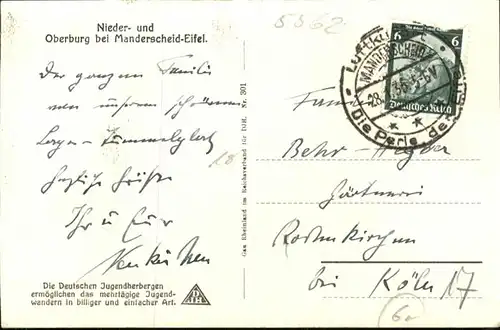 Nieder- und
Oberburg bei Manderscheid-Eifel.
5562
Der ganzen Familie
von unserem schönen
Lager-Tummelplatz
herzliche Grüße
Ihr u Eur
Die Deutschen Jugendherbergen
ermöglichen das mehrtägige Jugend-
wandern in billiger und einfacher Art.
DJH
Gau Rheinland im Reichsverband für DJH. Nr. 301
6
6
Deutsches Reich
MANDERSCHEID
Die Perle der
Familie
Behr-
Gärtnerei
Rodenkirchen
bei Köln 17